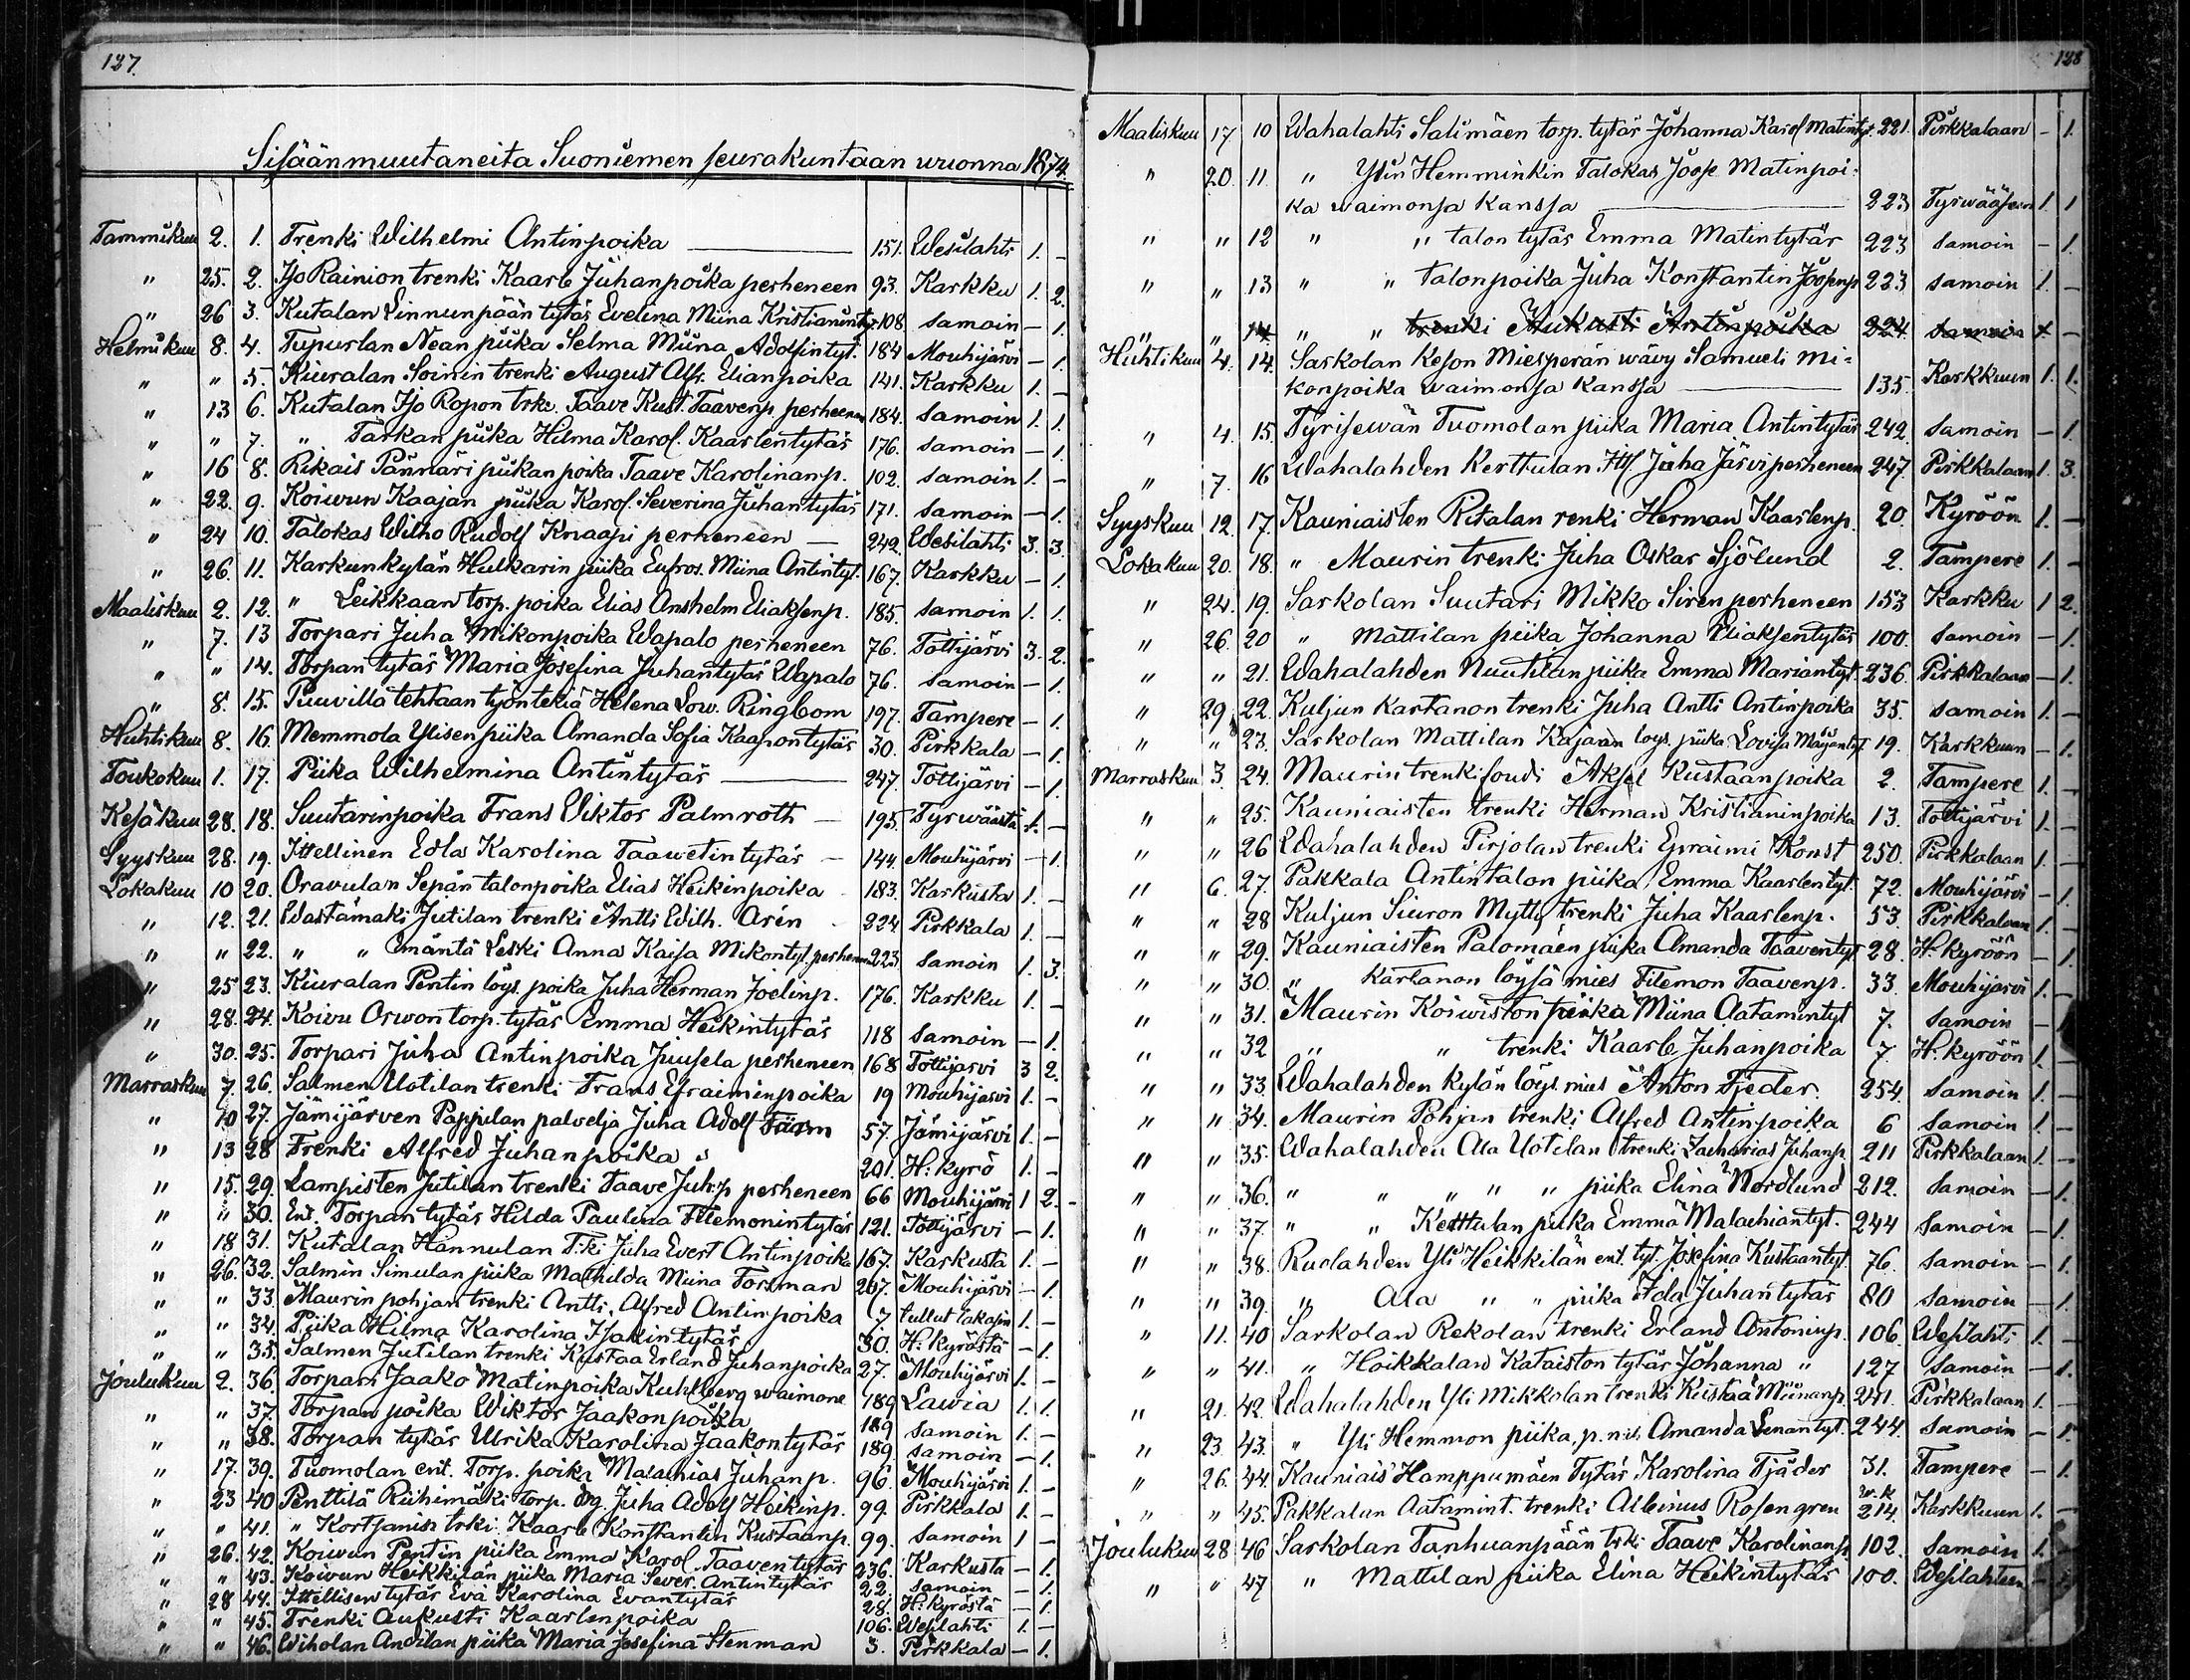 127.
Sisäänmuutaneita Suoniemen seurakuntaan wuonna 1874.
Tammikuu 2. 1. Trenki Wilhelmi Antinpoika — 151. Wesilahti 1. –
" 25. 2. Iso Rainion trenki Kaarle Juhanpoika perheneen 93. Karkku 1. 2.
" 26 3. Kutalan Linnunpään tytär Evelina Miina Kristianintyt. 108 samoin – 1.
Helmikuu 8. 4. Tupurlan Nean piika Selma Miina Adolfintyt. 184 Mouhijärvi – 1.
" " 5. Kiuralan Soinin trenki August Alfr. Elianpoika 141. Karkku 1. –
" 13 6. Kutalan Iso Ropon trke. Taave Kust. Taavenp. perheeneen 184. samoin 1. 1.
" " 7. " Tarkan piika Hilma Karol. Kaarlentytär 176. samoin – 1.
" 16 8. Rikais Pännäri piikan poika Taave Karolinanp. 102. samoin 1. –
" 22. 9. Koiwun Kaajan piika Karol. Severina Juhantytär 171. samoin – 1.
" 24 10. Talokas Wilho Rudolf Knaapi perheneen — 242. Wesilahti 3. 3.
" 26. 11. Karkunkylän Hulkarin piika Eufros. Miina Antintyt. 167. Karkku – 1.
Maaliskuu 2. 12. " Leikkaan torp. poika Elias Anshelm Eliaksenp. 185. samoin 1. 1.
" 7. 13 Torpari Juha Mikonpoika Wapalo perheneen 76. Tottijärvi 3. 2.
" " 14. Torpan tytär Maria Josefina Juhantytär Wapalo 76. samoin – 1.
" 8. 15. Puuvilla tehtaan työntekiä Helena Low. Ringbom 197. Tampere – 1.
Huhtikuu 8. 16. Memmola Ylisen piika Amanda Sofia Kaapontytär 30. Pirkkala – 1.
Toukokuu 1. 17. Piika Wilhelmina Antintytär — 247. Tottijärvi – 1.
Kesäkuu 28. 18. Suutarinpoika Frans Viktor Palmroth — 195. Tyrwäästä 1. –
Syyskuu 28. 19. Ittellinen Edla Karolina Taawetintytär — 144. Mouhijärvi – 1.
Lokakuu 10 20. Oravulan Sepän talonpoika Elias Heikinpoika 183. Karkusta 1. –
" 12. 21. Wastämäki Jutilan trenki Antti Wilh. Arén 224 Pirkkala 1. –
" " 22. " " emäntä Leski Anna Kaisa Mikontyt. perheneen 223 samoin 1. 3.
" 25 23. Kiuralan Pentin löys. poika Juha Herman Joelinp. 176. Karkku 1. –
" 28. 24. Koivu Orwon torp. tytär Emma Heikintytär 118 samoin – 1.
" 30. 25. Torpari Juha Antinpoika Juusela perheneen 168 Tottijärvi 3 2.
Marraskuu 7. 26. Salmen Uotilan trenki Frans Efraiminpoika 19 Mouhijärvi 1. –
" 10 27. Jämijärven Pappilan palvelja Juha Adolf 57. Jämijärvi 1. –
" 13 28 Trenki Alfred Juhanpoika " 201. H:kyrö 1. –
" 15. 29. Lampisten Jutilan trenki Taave Juh:p perheneen 66 Mouhijärvi 1 2.
" " 30. Ent. Torpan tytär Hilda Paulina Filemonintytär 121. Tottijärvi – 1.
" 18 31. Kutalan Hannulan T:ki Juha Evert Antinpoika 167. Karkusta 1. –
" 26. 32. Salmin Simulan piika Mathilda Miina Forsman 207. Mouhijärvi – 1.
" " 33. Maurin pohjan trenki Antti Alfred Antinpoika 7 tullut takasin 1. –
" " 34. Piika Hilma Karolina Isakintytär 30. H:kyröstä – 1.
" " 35. Salmen Jutilan trenki Kustaa Erland Juhanpoika 27. Mouhijärvi 1. –
Joulukuu 2. 36. Torpari Jaako Matinpoika Kuhlberg waimone 189 Lawia 1. 1.
" " 37. Torpan poika Wiktor Jaakonpoika 189 samoin 1. –
" " 38. Torpan tytär Ulrika Karolina Jaakontytär 189 samoin – 1.
" 17. 39. Tuomolan ent. Torp. poika Malachias Juhanp. 96. Mouhijärvi 1. –
" 23 40 Penttilä Riihimäki torp. Juha Adolf Heikinp. 99. Pirkkala 1. –
" " 41. " Kortjanin trki Kaarle Konstantin Kustaanp. 99. samoin 1 –
" 26. 42. Koiwun Pentin piika Emma Karol. Taaventytär 236. Karkusta – 1.
" " 43. Koiwun Heikkilän piika Maria Sever. Antintytär 22. samoin – 1.
" 28 44. Ittellisen tytär Eva Karolina Evantytär 28. H:kyröstä – 1.
" " 45. Trenki Aukusti Kaarlenpoika 106. Wesilahti 1. –
" " 46. Wiholan Andilan piika Maria Josefina Stenman 3. Pirkkala – 1.
128
Maaliskuu 17 10 Wahalahti Salimäen torp. tytär Johanna Karol Matintyt. 221. Pirkkalaan – 1.
" 20. 11. " Ylin Hemminkin Talokas Joose Matinpoi-
ka waimonsa kanssa — 223 Tyrwääseen 1. 1
" " 12 " " talon tytär Emma Matintytär 223 samoin – 1.
" " 13 " " talonpoika Juha Konstantin Joosenp 223 samoin 1. –
" " 14. " " trenki Aukusti Antinpoika 224. samoin 1 –
Huhtikuu 4. 14. Sarkolan Keson Miesperän wävy Samueli Mi-
konpoika waimonsa kanssa — 135. Karkkuun 1. 1.
" 4. 15. Tyrisewän Tuomolan piika Maria Antintytär 242. samoin – 1.
" 7. 16 Wahalahden Kerttulan Itl. Juha Järvi perheneen 247. Pirkkalaan 1. 3.
Syyskuu 12. 17. Kauniaisten Ritalan renki Herman Kaarlenp. 20. Kyröön 1. –
Lokakuu 20. 18. " Maurin trenki Juha Oskar Sjölund 2. Tampere 1. –
" 24. 19. Sarkolan Suutari Mikko Siren perheneen 153 Karkku 1 2.
" 26. 20 " Mattilan piika Johanna Eliaksentytär 100. samoin – 1.
" " 21. Wahalahden Nuutilan piika Emma Mariantyt. 236. Pirkkalaan – 1.
" 29. 22. Kuljun Kartanon trenki Juha Antti Antinpoika 35. samoin 1. –
" " 23. Sarkolan Mattilan Kajaan loys. piika Lovisa 19. Karkkuun – 1.
Marraskuu 3. 24. Maurin trenki Aksel Kustaanpoika 2. Tampere 1. –
" " 25. Kauniaisten trenki Herman Kristianinpoika 13. Tottijärvi 1. –
" " 26 Wahalahden Pirjolan trenki Efraimi Konst 250. Pirkkalaan 1. –
" 6. 27. Pakkala Antintalon piika Emma Kaarlentyt. 72. Mouhijärvi – 1.
" " 28 Kuljun Siuron Mylly trenki Juha Kaarlenp. 53. Pirkkalaan 1. –
" " 29. Kauniaisten Palomäen piika Amanda Taaventyt 28. H:kyröön – 1.
" " 30. " Kartanon löysä mies Filemon Taavenp. 33. Mouhijärvi 1. –
" " 31. Maurin Koiwiston piika Miina Aatamintyt 7. samoin – 1
" " 32 " " trenki Kaarle Juhanpoika 7. H:kyröön 1. –
" " 33. Wahalahden kylän löys. mies Anton Tjeder. 254. samoin 1. –
" " 34. Maurin Pohjan trenki Alfred Antinpoika 6 samoin 1. –
" " 35. Wahalahden Ala Uotilan trenki Zacharias Juhanp. 211 Pirkkalaan 1. –
" " 36. " " " " " piika Elina Nordlund 212. samoin – 1.
" " 37. " " Kerttulan piika Emma Malachiantyt. 244 samoin – 1.
" " 38. Ruolahden Yli Heikkilän ent. tyt. Josefina Kustaantyt. 76. samoin – 1.
" " 39. " Ala " " piika Ida Juhantytär 80 samoin – 1.
" 11. 40 Sarkolan Rekolan trenki Erland Antoninp. 106. Wesilahti 1. –
" " 41. " Hoikkalan Kataiston tytär Johanna " 127 samoin – 1.
" 21. 42. Wahalahden Yli Mikkolan trenki Kustaa Miinanp. 241. Pirkkalaan 1. –
" 23. 43. " Yli Hemmon piika Amanda Lenantyt. 244. samoin – 1
" 26. 44. Kauniais Hamppumäen Tytär Karolina Tjäder 31. Tampere – 1.
" " 45. Pakkalan Aatamint. trenki Albinus Rosengren w.k 214. Karkkuun 1. –
Joulukuu 28 46 Sarkolan Tanhuanpään trki Taave Karolinanp. 102. samoin 1.
" " 47 " Mattilan piika Elina Heikintytär 100. Wesilahteen –